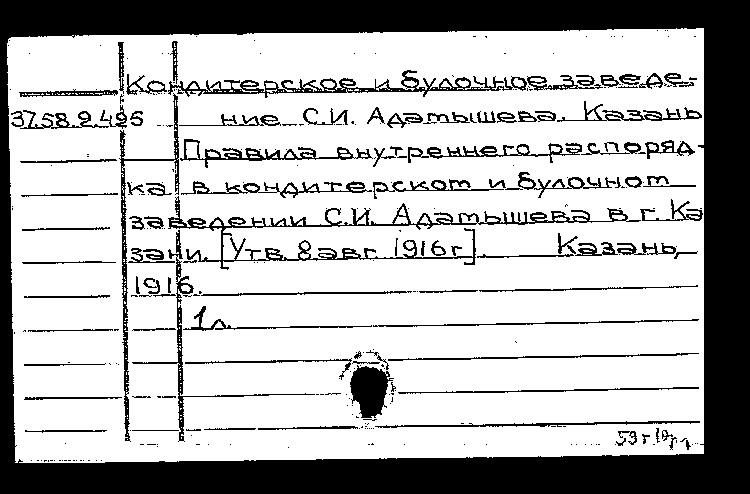 Кондитерское и булочное заведе-
37.58.2.495 ние С.И. Адамышева. Казань
Правила внутреннего распоряд-
ка в кондитерском и булочном
заведении С.И. Адамышева в г. Ка
зани. [Утв. 8 авг. 1916 г.]. Казань,
1916.
1 л.